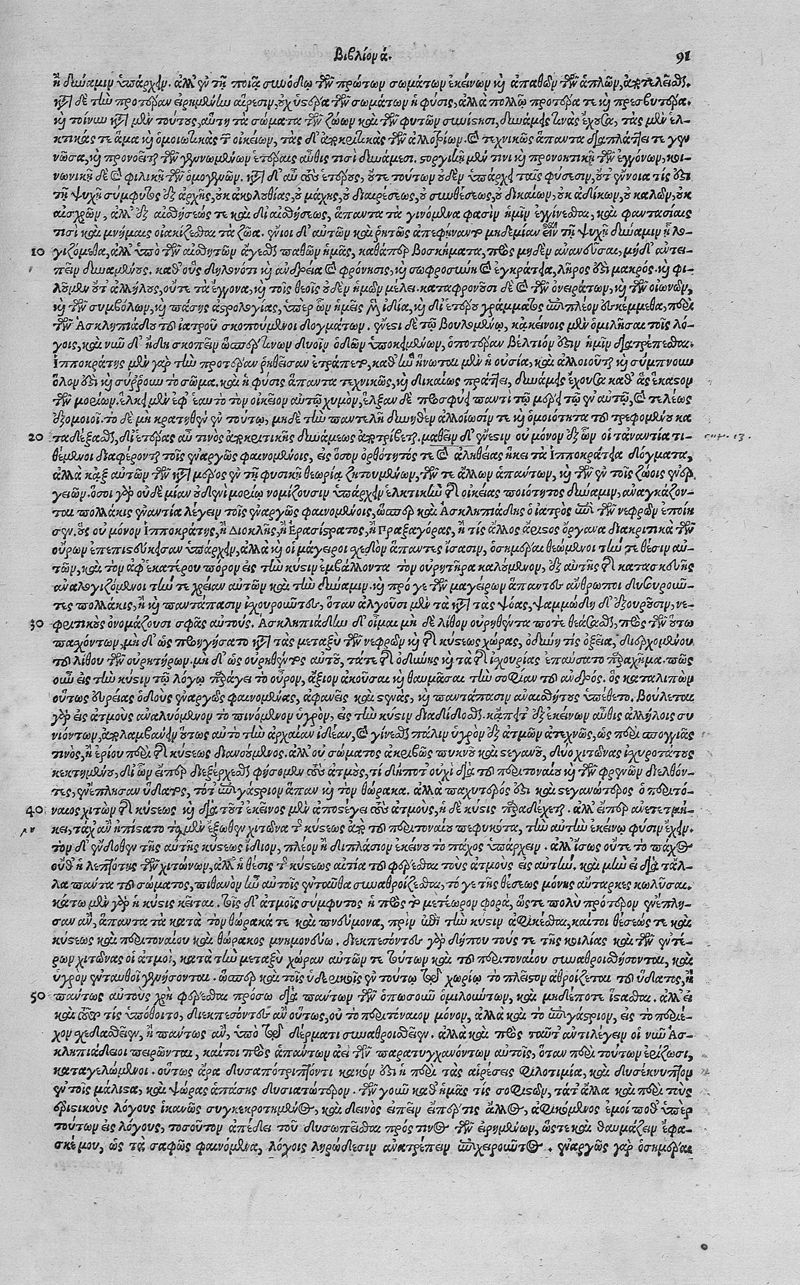 Βιβλίον ά. 91
ἢ δύναμιν ὑπάρχειν. ἀλλ' ἐν τῇ ποιᾷ συνόδῳ τῶν πρώτων σωμάτων ἐκείνων καὶ ἀπαθῶν τῶν ἁπλῶν, ἀποτελεῖσθαι.
κατὰ δὲ τὴν προτέραν εἰρημένην αἵρεσιν, οὐχ ὑστέρα τῶν σωμάτων ἡ φύσις, ἀλλὰ πολλῷ προτέρα τε καὶ πρεσβυτέρα.
καὶ τοίνυν κατὰ μὲν τούτους, αὕτη τὰ σώματα τῶν ζώων καὶ τῶν φυτῶν συνίστησι, δυνάμεις τινὰς ἔχουσα, τὰς μὲν ἑλ-
κτικάς τε ἅμα καὶ ὁμοιωτικὰς τῶν οἰκείων, τὰς δ' ἀποκριτικὰς τῶν ἀλλοτρίων. καὶ τεχνικῶς ἅπαντα διαπλάττει τε γεν-
νῶσα, καὶ προνοεῖται τῶν γεννωμένων ἑτέραις αὖθις τισὶ δυνάμεσι. στοργικῇ μέν τινι καὶ προνοητικῇ τῶν ἐγγόνων, κοι-
νωνικῇ δὲ καὶ φιλικῇ τῶν ὁμογενῶν. κατὰ δ' αὖ τοὺς ἑτέρους, οὔτε τούτων οὐδὲν ὑπάρχει ταῖς φύσεσιν, οὔτ' ἔννοιά τις ἐστὶ
τῇ ψυχῇ σύμφυτος ἐξ ἀρχῆς, οὐκ ἀκολουθίας, οὐ μάχης, οὐ διαιρέσεως, οὐ συνθέσεως, οὐ δικαίων, οὐκ ἀδίκων, οὐ καλῶν, οὐκ
αἰσχρῶν, ἀλλ' ἐξ αἰσθήσεώς τε καὶ δι' αἰσθήσεως, ἅπαντα τὰ γινόμενα φασὶν ἡμῖν ἐγγίνεσθαι, καὶ φαντασίαις
τισὶ καὶ μνήμαις οἰακίζεσθαι τὰ ζῶα. ἔνιοι δ' αὐτῶν καὶ ῥητῶς ἀπεφήναντο μηδεμίαν εἶναι τῇ ψυχῇ δύναμιν ᾗ λο-
10 γιζόμεθα, ἀλλ' ὑπὸ τῶν αἰσθητῶν ἄγεσθαι παθῶν ἡμᾶς, καθάπερ βοσκήματα, πρὸς μηδὲν ἀνανεῦσαι, μηδ' ἀντει-
πεῖν δυναμένους. καθ' οὓς δηλονότι καὶ ἀνδρεία καὶ φρόνησις, καὶ σωφροσύνη καὶ ἐγκράτεια, λῆρος ἐστὶ μακρός. καὶ φι-
λοῦμεν οὔτ' ἀλλήλους, οὔτε τὰ ἔγγονα, καὶ τοῖς θεοῖς οὐδὲν ἡμῶν μέλει. καταφρονοῦσι δὲ καὶ τῶν ὀνειράτων, καὶ τῶν οἰωνῶν,
καὶ τῶν συμβόλων, καὶ πάσης ἀστρολογίας, ὑπὲρ ὧν ἡμεῖς μὲν ἰδίᾳ, καὶ δι' ἑτέρου γράμματος ἐπὶ πλέον ἐσκέμμεθα, περὶ
τῶν Ἀσκληπιάδου τοῦ ἰατροῦ σκοπούμενοι δογμάτων. ἔνεστι δὲ τῷ βουλομένῳ, κἀκείνοις μὲν ὁμιλῆσαι τοῖς λό-
γοις, καὶ νῦν δ' ἤδη σκοπεῖν ὥσπερ τινῶν δυοῖν ὁδῶν ὑποκειμένων, ὁποτέραν βέλτιόν ἐστιν ἡμῖν διατρέπεσθαι.
Ἱπποκράτης μὲν γὰρ τὴν προτέραν ῥηθεῖσαν ἐτράπετο, καθ' ἣν ἥνωται μὲν ἡ οὐσία, καὶ ἀλλοιοῦται καὶ σύμπνουν
ὅλον ἐστὶ καὶ σύρρουν τὸ σῶμα. καὶ ἡ φύσις ἅπαντα τεχνικῶς, καὶ δικαίως πράττει, δυνάμεις ἔχουσα καθ' ἃς ἕκαστον
τῶν μορίων, ἕλκει μὲν ἐφ' ἑαυτὸ τὸν οἰκεῖον αὐτῷ χυμόν, ἕλξαν δὲ προσφύει παντὶ τῷ μορίῳ τῷ ἐν αὐτῷ, καὶ τελέως
ἐξομοιοῖ. τὸ δὲ μὴ κρατηθὲν ἐν τούτῳ, μηδὲ τὴν παντελῆ δυνηθὲν ἀλλοίωσίν τε καὶ ὁμοιότητα τοῦ τρεφομένου κα
20 ταδέξασθαι, δι' ἑτέρας αὖ τινὸς ἀποκριτικῆς δυνάμεως ἀποτρίβεται. μαθεῖν δ' ἔνεστιν οὐ μόνον ἐξ ὧν οἱ τἀναντία τι- cap. 13.
θέμενοι διαφέρονται τοῖς ἐναργῶς φαινομένοις, εἰς ὅσον ὀρθότητός τε καὶ ἀληθείας ἥκει τὰ Ἱπποκράτει δόγματα,
ἀλλὰ κἀξ αὐτῶν τῶν κατὰ μέρος ἐν τῇ φυσικῇ θεωρίᾳ ζητουμένων, τῶν τε ἄλλων ἁπάντων, καὶ τῶν ἐν τοῖς ζώοις ἐνερ-
γειῶν. ὅσοι γὰρ οὐδεμίαν οὐδενὶ μορίῳ νομίζουσιν ὑπάρχειν ἑλκτικὴν τῆς οἰκείας ποιότητος δύναμιν, ἀναγκάζον-
ται πολλάκις ἐναντία λέγειν τοῖς ἐναργῶς φαινομένοις, ὥσπερ καὶ Ἀσκληπιάδης ὁ ἰατρὸς ἐπὶ τῶν νεφρῶν ἐποίη
σεν. οὓς οὐ μόνον Ἱπποκράτης, ἢ Διοκλῆς, ἢ Ἐρασίστρατος, ἢ Πραξαγόρας, ἤ τις ἄλλος ἄριστος ὄργανα διακριτικὰ τῶν
οὔρων ἐπεπιστεύκησαν ὑπάρχειν, ἀλλὰ καὶ οἱ μάγειροι σχεδὸν ἅπαντες ἴσασιν, ὁσημέραι θεώμενοι τήν τε θέσιν αὐ-
τῶν, καὶ τὸν ἀφ' ἑκατέρου πόρον εἰς τὴν κύστιν ἐμβάλλοντα τὸν οὐρητῆρα καλούμενον, ἐξ αὐτῆς τῆς κατασκευῆς
ἀναλογιζόμενοι τήν τε χρείαν αὐτῶν καὶ τὴν δύναμιν. καὶ πρό γε τῶν μαγείρων ἅπαντες ἄνθρωποι δυσουροῦν-
τες πολλάκις, ἢ καὶ παντάπασιν ἰσχουροῦντες, ὅταν ἀλγοῦσι μὲν τὰ κατὰ τὰς ψόας, ψαμμώδη δ' ἐξουρῶσιν, νε-
30 φριτικοὺς ὀνομάζουσι σφᾶς αὐτούς. Ἀσκληπιάδην δ' οἶμαι μηδὲ λίθον οὐρηθέντα ποτὲ θεάσασθαι, πρὸς τῶν οὕτω
πασχόντων. μηδ' ὡς προηγήσατο κατὰ τὰς μεταξὺ τῶν νεφρῶν καὶ τῆς κύστεως χώρας, ὀδύνη τις ὀξεῖα, διερχομένου
τοῦ λίθου τῶν οὐρητήρων. μηδ' ὡς οὐρηθέντος αὐτοῦ, τά τε τῆς ὀδύνης καὶ τὰ τῆς ἰσχουρίας ἐπαύσατο παραχρῆμα. πῶς
οὖν εἰς τὴν κύστιν τῷ λόγῳ παράγει τὸ οὖρον, ἄξιον ἀκοῦσαι καὶ θαυμᾶσαι τὴν σοφίαν τοῦ ἀνδρός. ὃς καταλιπὼν
οὕτως εὐρείας ὁδοὺς ἐναργῶς φαινομένας, ἀφανεῖς καὶ στενάς, καὶ παντάπασιν ἀναισθήτους ὑπέθετο. βούλεται
γὰρ εἰς ἀτμοὺς ἀναλυόμενον τὸ πινόμενον ὑγρόν, εἰς τὴν κύστιν διαδίδοσθαι. κἄπειτ' ἐξ ἐκείνων αὖθις ἀλλήλοις συ
νιόντων, ἀπολαμβάνειν οὕτως αὐτὸ τὴν ἀρχαίαν ἰδέαν, καὶ γίνεσθαι πάλιν ὑγρὸν ἐξ ἀτμῶν ἀτεχνῶς, ὡς περὶ σπογγιᾶς
τινός, ἢ ἐρίου περὶ τῆς κύστεως διανοούμενος. ἀλλ' οὐ σώματος ἀκριβῶς πυκνοῦ καὶ στεγανοῦ, δύο χιτῶνας ἰσχυροτάτους
κεκτημένου, δι' ὧν εἴπερ διεξέρχεσθαι φήσομεν τοὺς ἀτμούς, τί δήποτ' οὐχὶ διὰ τοῦ περιτοναίου καὶ τῶν φρενῶν διελθόν-
τες, ἐνέπλησαν ὕδατος, τό τ' ἐπιγάστριον ἅπαν καὶ τὸν θώρακα. ἀλλὰ παχύτερος ἐστὶ καὶ στεγανώτερος ὁ περιτό-
40 ναιος χιτὼν τῆς κύστεως καὶ διὰ τοῦτ' ἐκεῖνος μὲν ἀποστέγει τοὺς ἀτμούς, ἡ δὲ κύστις παραδέχεται. ἀλλ' εἴπερ ἀνετετμή-
κει, τάχ' ἂν ἠπίστατο τὸν μὲν ἔξωθεν χιτῶνα τῆς κύστεως ἀπὸ τοῦ περιτοναίου πεφυκότα, τὴν αὐτὴν ἐκείνῳ φύσιν ἔχειν.
τὸν δ' ἔνδοθεν τῆς αὐτῆς κύστεως ἴδιον, πλέον ἢ διπλάσιον ἐκείνου τὸ πάχος ὑπάρχειν. ἀλλ' ἴσως οὔτε τὸ πάχος
οὔθ' ἡ λεπτότης τῶν χιτώνων, ἀλλ' ἡ θέσις τῆς κύστεως αἰτία τοῦ φέρεσθαι τοὺς ἀτμοὺς εἰς αὐτήν. καὶ μὴν εἰ διὰ τἄλ-
λα πάντα τοῦ σώματος, πιθανὸν ἦν αὐτοῖς ἐνταῦθα συναθροίζεσθαι, τό γε τῆς θέσεως μόνης αὔταρκες κωλῦσαι.
κάτω μὲν γὰρ ἡ κύστις κεῖται. τοῖς δ' ἀτμοῖς σύμφυτος ἡ πρὸς τὸ μετέωρον φορά, ὥστε πολὺ πρότερον ἐνέπλη-
σαν ἄν, ἅπαντα τὰ κατὰ τὸν θώρακά τε καὶ πνεύμονα, πρὶν ἐπὶ τὴν κύστιν ἀφικέσθαι. καίτοι θέσεώς τε καὶ
κύστεως καὶ περιτοναίου καὶ θώρακος μνημονεύω. διεκπεσόντες γὰρ δήπου τούς τε τῆς κοιλίας καὶ τῶν ἐντέ-
ρων χιτῶνας οἱ ἀτμοί, κατὰ τὴν μεταξὺ χώραν αὐτῶν τε τούτων καὶ τοῦ περιτοναίου συναθροισθήσονται, καὶ
ὑγρὸν ἐνταυθοῖ γενήσονται. ὥσπερ καὶ τοῖς ὑδερικοῖς ἐν τούτῳ τῷ χωρίῳ τὸ πλεῖστον ἀθροίζεται τοῦ ὕδατος, ἢ
50 πάντως αὐτοὺς χρὴ φέρεσθαι πρόσω διὰ πάντων τῶν ὁπωσοῦν ὁμιλούντων, καὶ μηδέποτε ἵστασθαι. ἀλλ' εἰ
καὶ τοῦτό τις ὑπόθοιτο, διεκπεσόντες ἂν οὕτως, οὐ τὸ περιτόναιον μόνον, ἀλλὰ καὶ τὸ ἐπιγάστριον, εἰς τὸ περιέ-
χον σκεδασθεῖεν, ἢ πάντως ἄν, ὑπὸ τῷ δέρματι συναθροισθεῖεν. ἀλλὰ καὶ πρὸς ταῦτ' ἀντιλέγειν οἱ νῦν Ἀσ-
κληπιάδειοι πειρῶνται, καίτοι πρὸς ἁπάντων ἀεὶ τῶν παρατυγχανόντων αὐτοῖς, ὅταν περὶ τούτων ἐρίζωσι,
καταγελώμενοι. οὕτως ἄρα δυσαπότριπτόν τι κακόν ἐστι περὶ τὰς αἱρέσεις φιλοτιμία, καὶ δυσέκνιπτον
ἐν τοῖς μάλιστα, καὶ ψώρας ἁπάσης δυσιατώτερον. τῶν γοῦν καθ' ἡμᾶς τις σοφιστῶν, τά τ' ἄλλα καὶ περὶ τοὺς
ἐριστικοὺς λόγους ἱκανῶς συγκεκροτημένος, καὶ δεινὸς εἰπεῖν εἴπερ τις ἄλλος, ἀφικόμενος ἐμοί ποθ' ὑπὲρ
τούτων εἰς λόγους, τοσοῦτον ἀπέδει τοῦ δυσωπεῖσθαι πρός τινος τῶν εἰρημένων, ὥστε καὶ θαυμάζειν ἔφα-
σκέ μου, ὡς τὰ σαφῶς φαινόμενα, λόγοις ληρώδεσιν ἀνατρέπειν ἐπιχειροῦντος. ἐναργῶς γὰρ ὁσημέραι